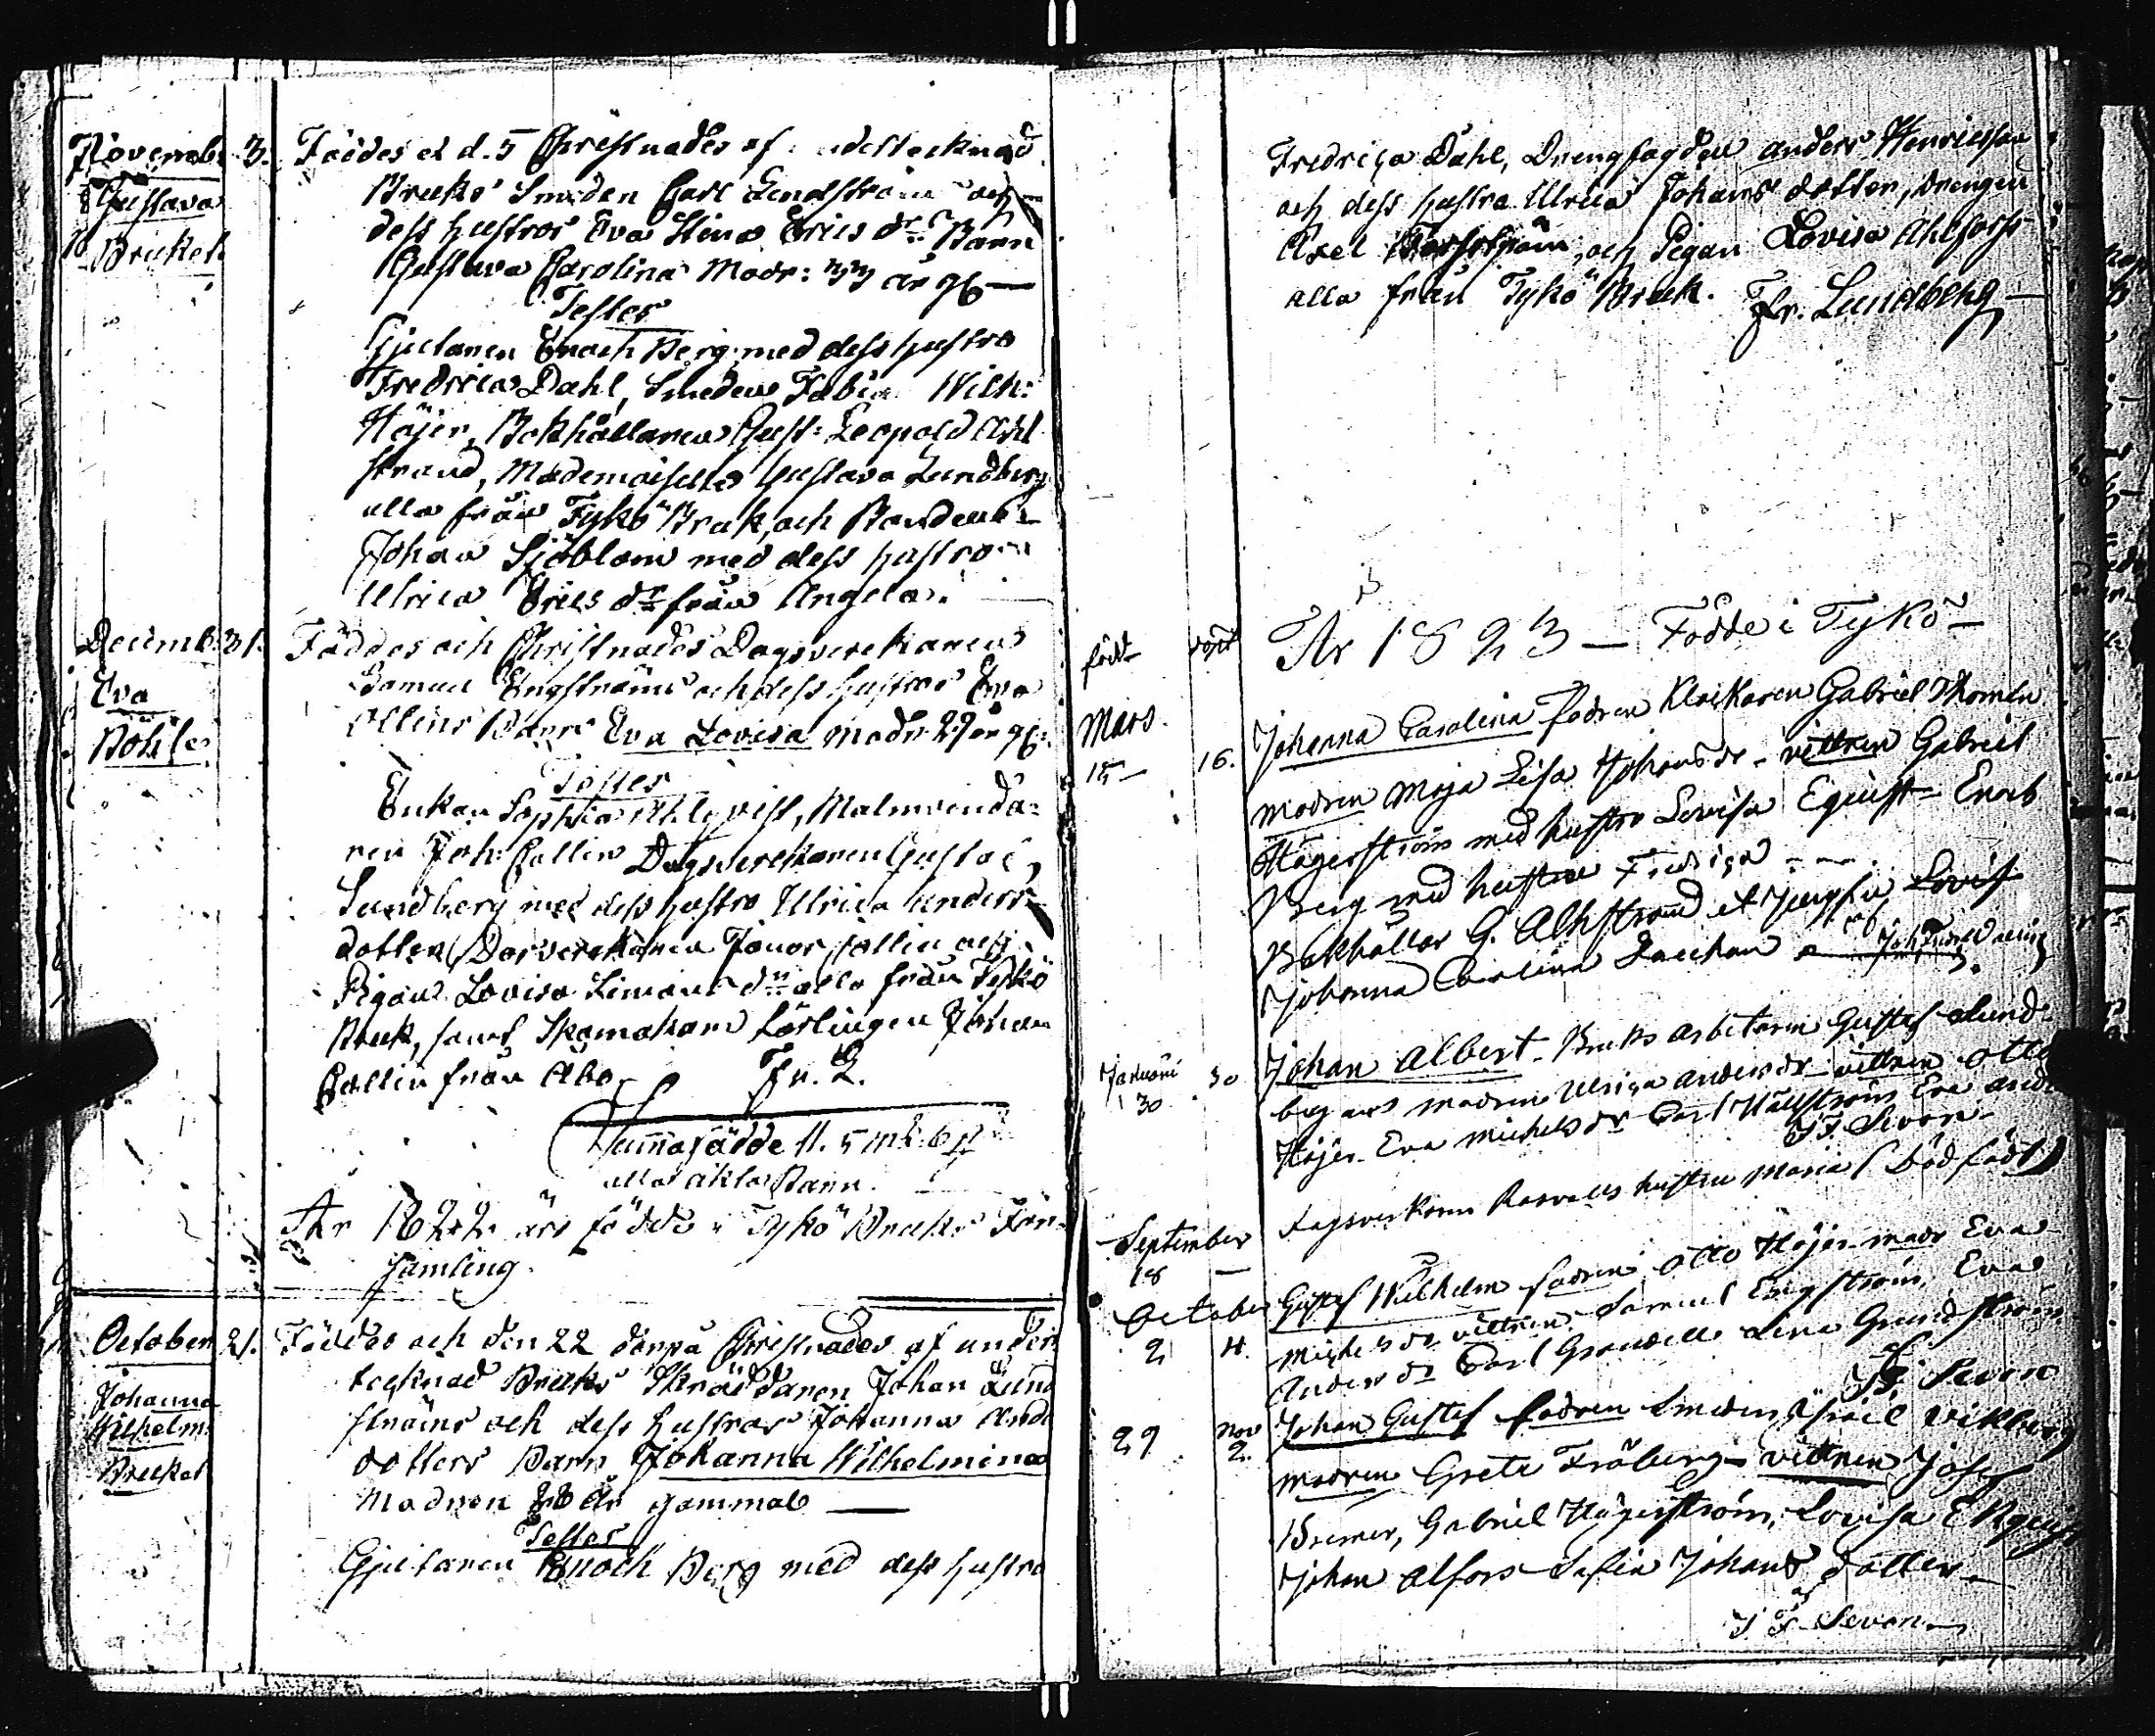 Novemb. 3. Föddes et d. 5 Christnades af undertecknad
Gustava Bruks Smeden Carl Lindström och
Bruket dess hustros Eva Stina Erics dr. Barn
Gustava Carolina Modr: 33 år gl.
Testes
Gjutaren Enoch Berg med dess hustro
Fredrica Dahl, Smeden Fabia Wilh:
Höjer, Bokhållaren Gust: Leopold Ahl
strand, Mademoiselle Gustava Lundberg
alla från Tykö Bruk, och Bonden
Johan Sjöblom med dess hustro
Ulrica Erics dr från Angela.
Decemb. 31. Föddes och Christnades Dagsverkaren
Eva Samuel Engströms och dess hustros Eva
Böhle Collins Barn Eva Lovisa Modr 29 år gl:
Testes
Enkan Sophia Ahlqvist,
ren Joh: Collin Dagsverkaren Gustaf
Lundberg med dess hustro Ulrica Anders
dotter, Dagsverkaren Collin och
Pigan Lovisa Simons dr alla från Tykö
Bruk, samt Skomakare Lärlingen Johan
Collin från Åbo Fr. L.
Summa födde 11. 5 mk. 6 q
alla äkta Barn.
År 1822 äro födde i Tykö Bruks För-
samling.
October 21. Föddes och den 22 derpå Christnades af under
Johanna tecknad Bruks Skräddaren Johan Lund
Wilhelm: ströms och dess hustros Johanna Anders
Bruket dotters Barn Johanna Wilhelmina
Modren 28 år gammal
Testes
Gjutaren Enoch Berg med dess hustro
Fredriça Dahl, Drengfogden Anders Henricsson
och dess hustro Ulrica Johans dotter, drengen
Axel och Pigan Lovisa Ahlfors
alla från Tykö Bruk. Fr. Lundberg
född döpt År 1823 — Födde i Tykö
Mars. Johanna Carolina fadren Klockaren Gabriel Thomeln
15 16. modren Maja Lisa Johans dr - vittnen Gabriel
Hägerström med hustro Lovisa Equist Enok
Berg med hustru Fredriqa
Bokhållar G. Alhstrand et Jungfru Lovis
Johanna Carolina
Januarii 30 Johan Albert. Bruks arbetaren Gustaf Lund
30 bergs modren Ulriça Anders dr vittnen Otto
Höjer Eva Michels dr Carl Hällström Eva Anders
J F. Sevon
September Dagsverkaren hustru Maria (Död född)
18 —
October Gustaf Wilhelm fadren Otto Höjer modr Eva
2 4. Michels dr vittnen Samuel Engström, Eva
Anders dr Carl Granvell Lena Grundström
J F. Sevon
29 Nov 2. Johan Gustaf fadren Smeden Israel Vikberg
modren Greta Fröberg vittnen Josef
Bremer, Gabriel Hägerström, Lovisa
Johan Alfors Sofia Johans dotter
J F. Sevon